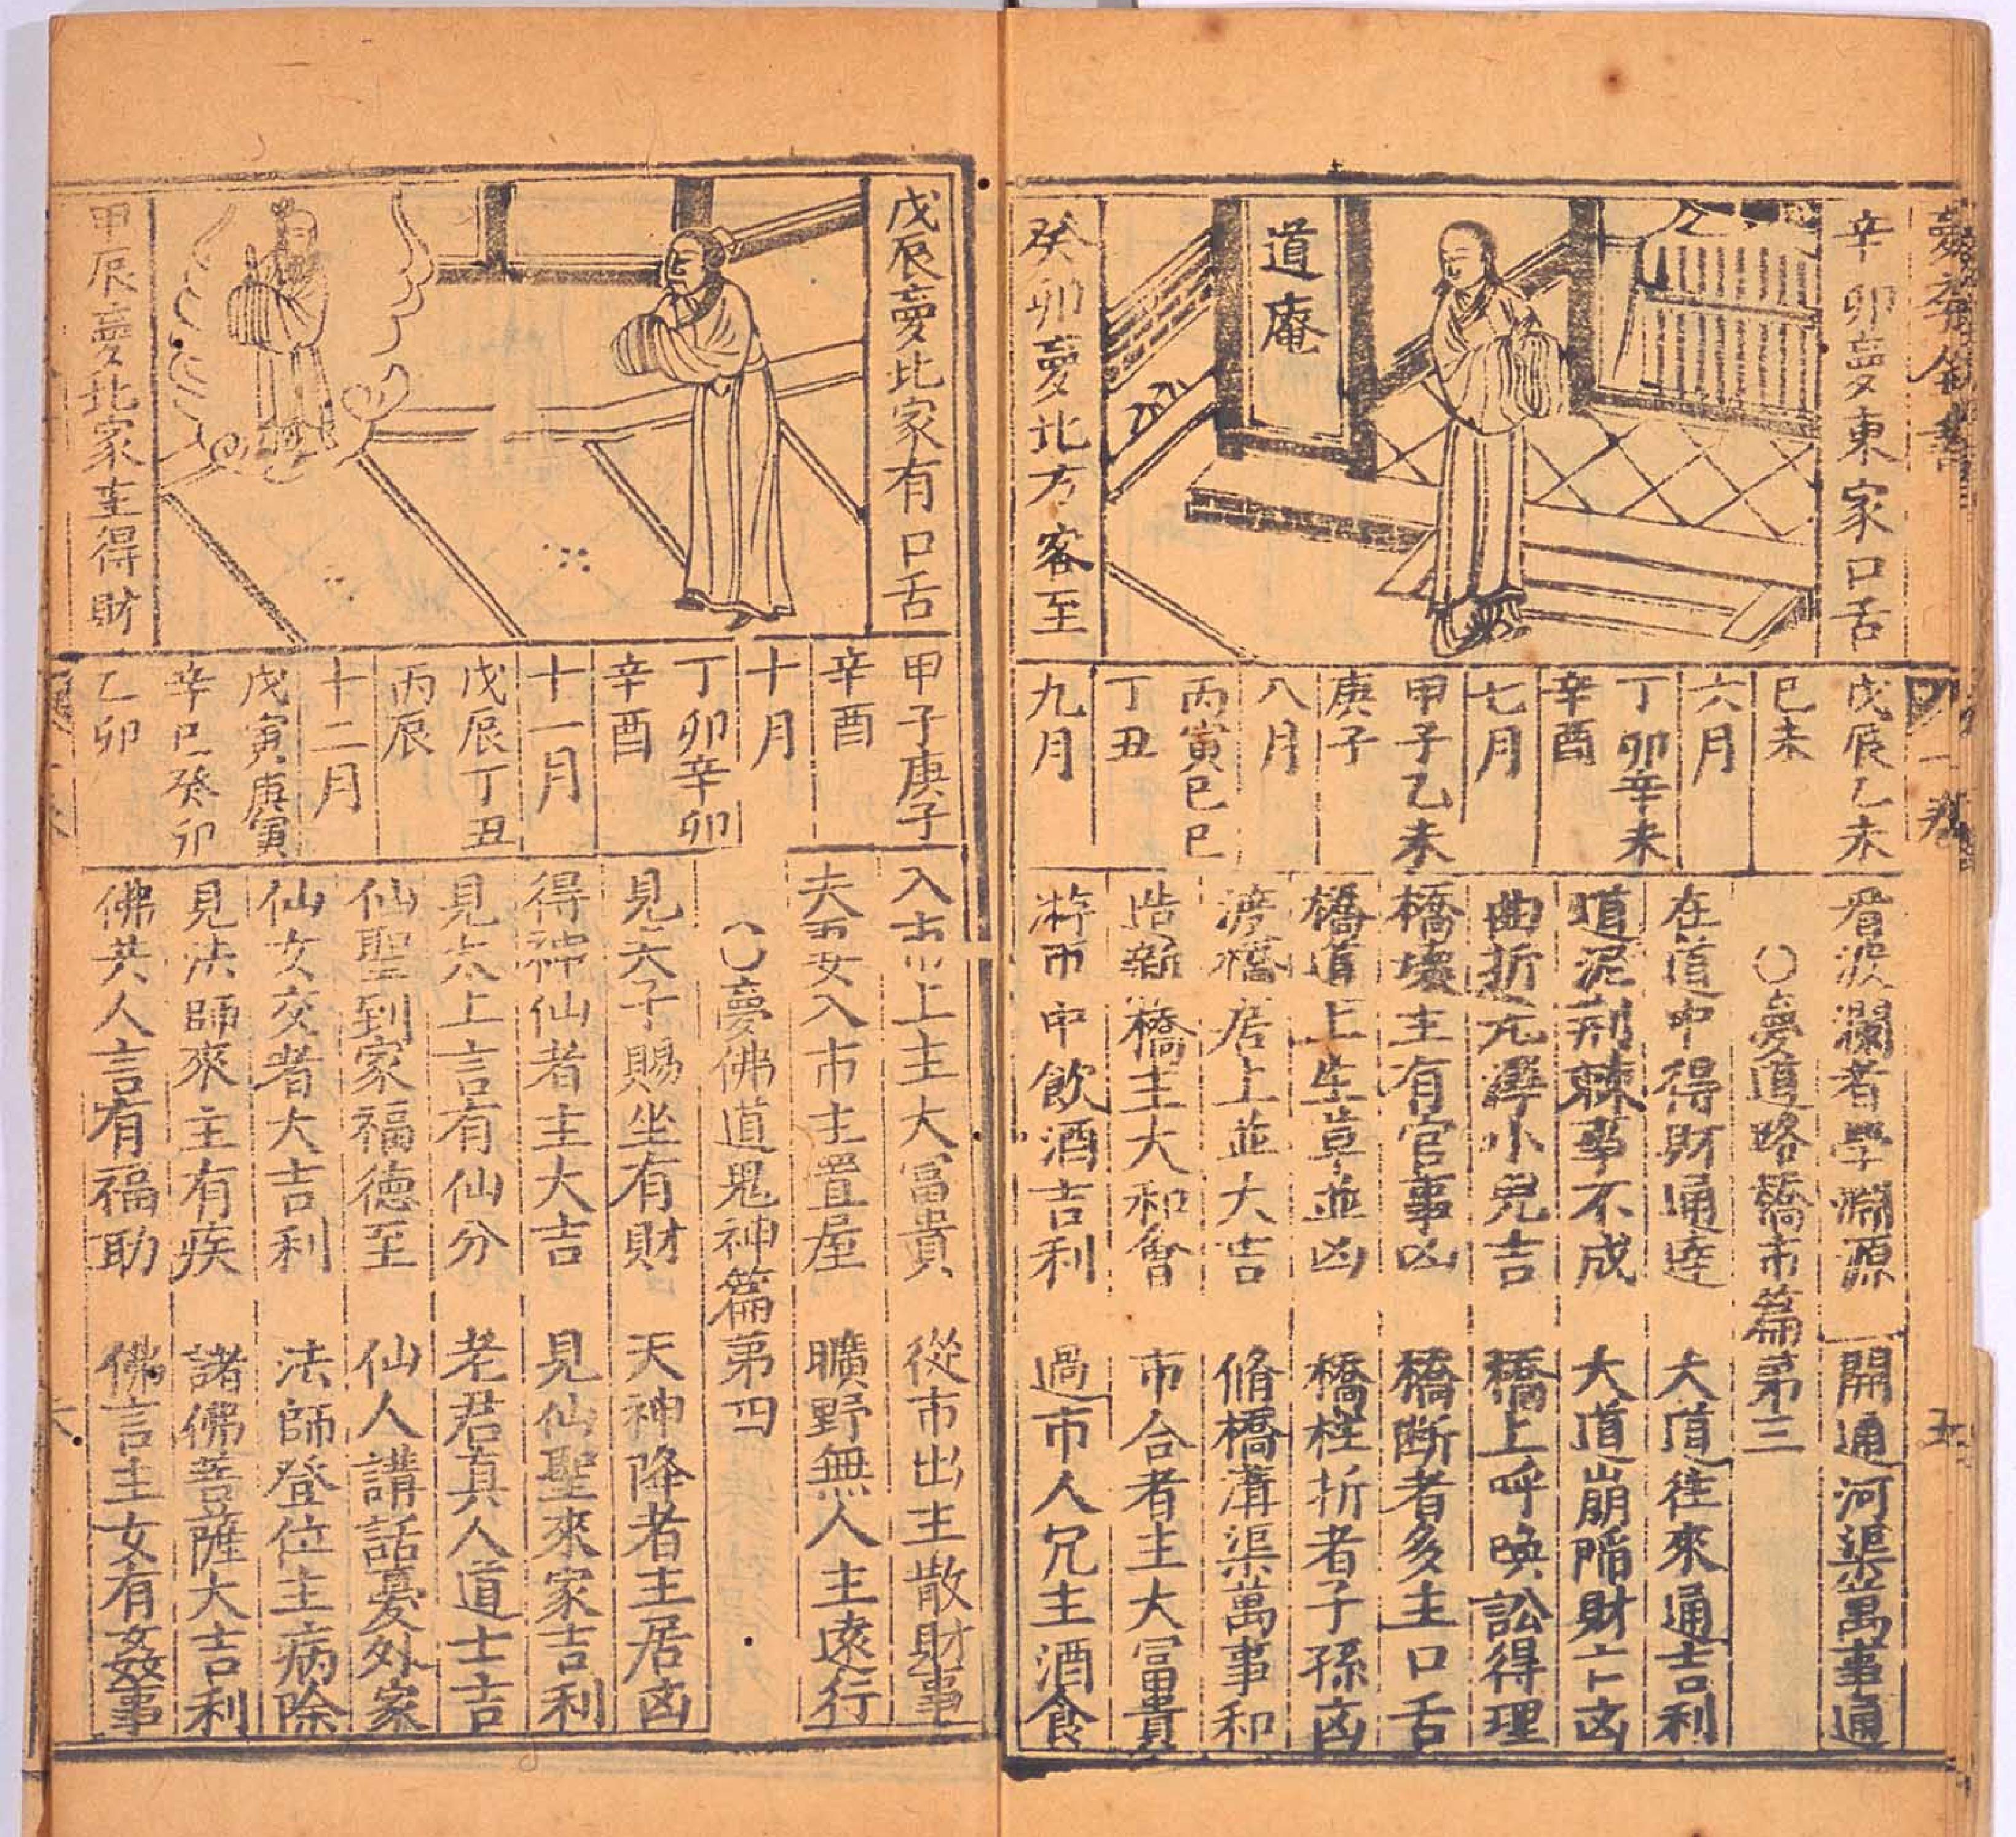 辛卯夢東家口舌
道庵
癸卯夢北方客至
戊辰乙未
巳未
六月
丁卯辛未
辛酉
七月
甲子乙未
庚子
八月
丙寅巳巳
丁丑
九月
看波瀾者學淵源 開通河渠萬事通
○夢道路橋市篇第三
在道中得財通達 大道往來通吉利
道泥荊棘事不成 大道崩陷財亡凶
曲折 小兒吉 橋上呼喚訟得理
橋壞主有官事凶 橋断者多主口舌
橋道上生草並凶 橋柱折者子孫凶
渡橋居上並大吉 脩橋溝渠萬事和
造新橋主大和會 市合者主大冨貴
游市中飲酒吉利 過市人冗主酒食
戊辰夢北家有口舌
甲辰夢北家主得財
甲子庚子
辛酉
十月
丁卯辛卯
辛酉
十一月
戊辰丁丑
丙辰
十二月
戊寅庚寅
辛巳癸卯
乙卯
入市上主大冨貴 從市出主散財事
夫妻女入市主置屋 曠野無人主遠行
○夢佛道鬼神篇第四
見天子賜坐有財 天神降者主居凶
得神仙者主大吉 見仙聖來家吉利
見太上言有仙分 老君真人道士吉
仙聖到家福德至 仙人講話憂外家
仙女交者大吉利 法師登位主病除
見法師來主有疾 諸佛菩薩大吉利
佛共人言有福助 佛言主女有姦事